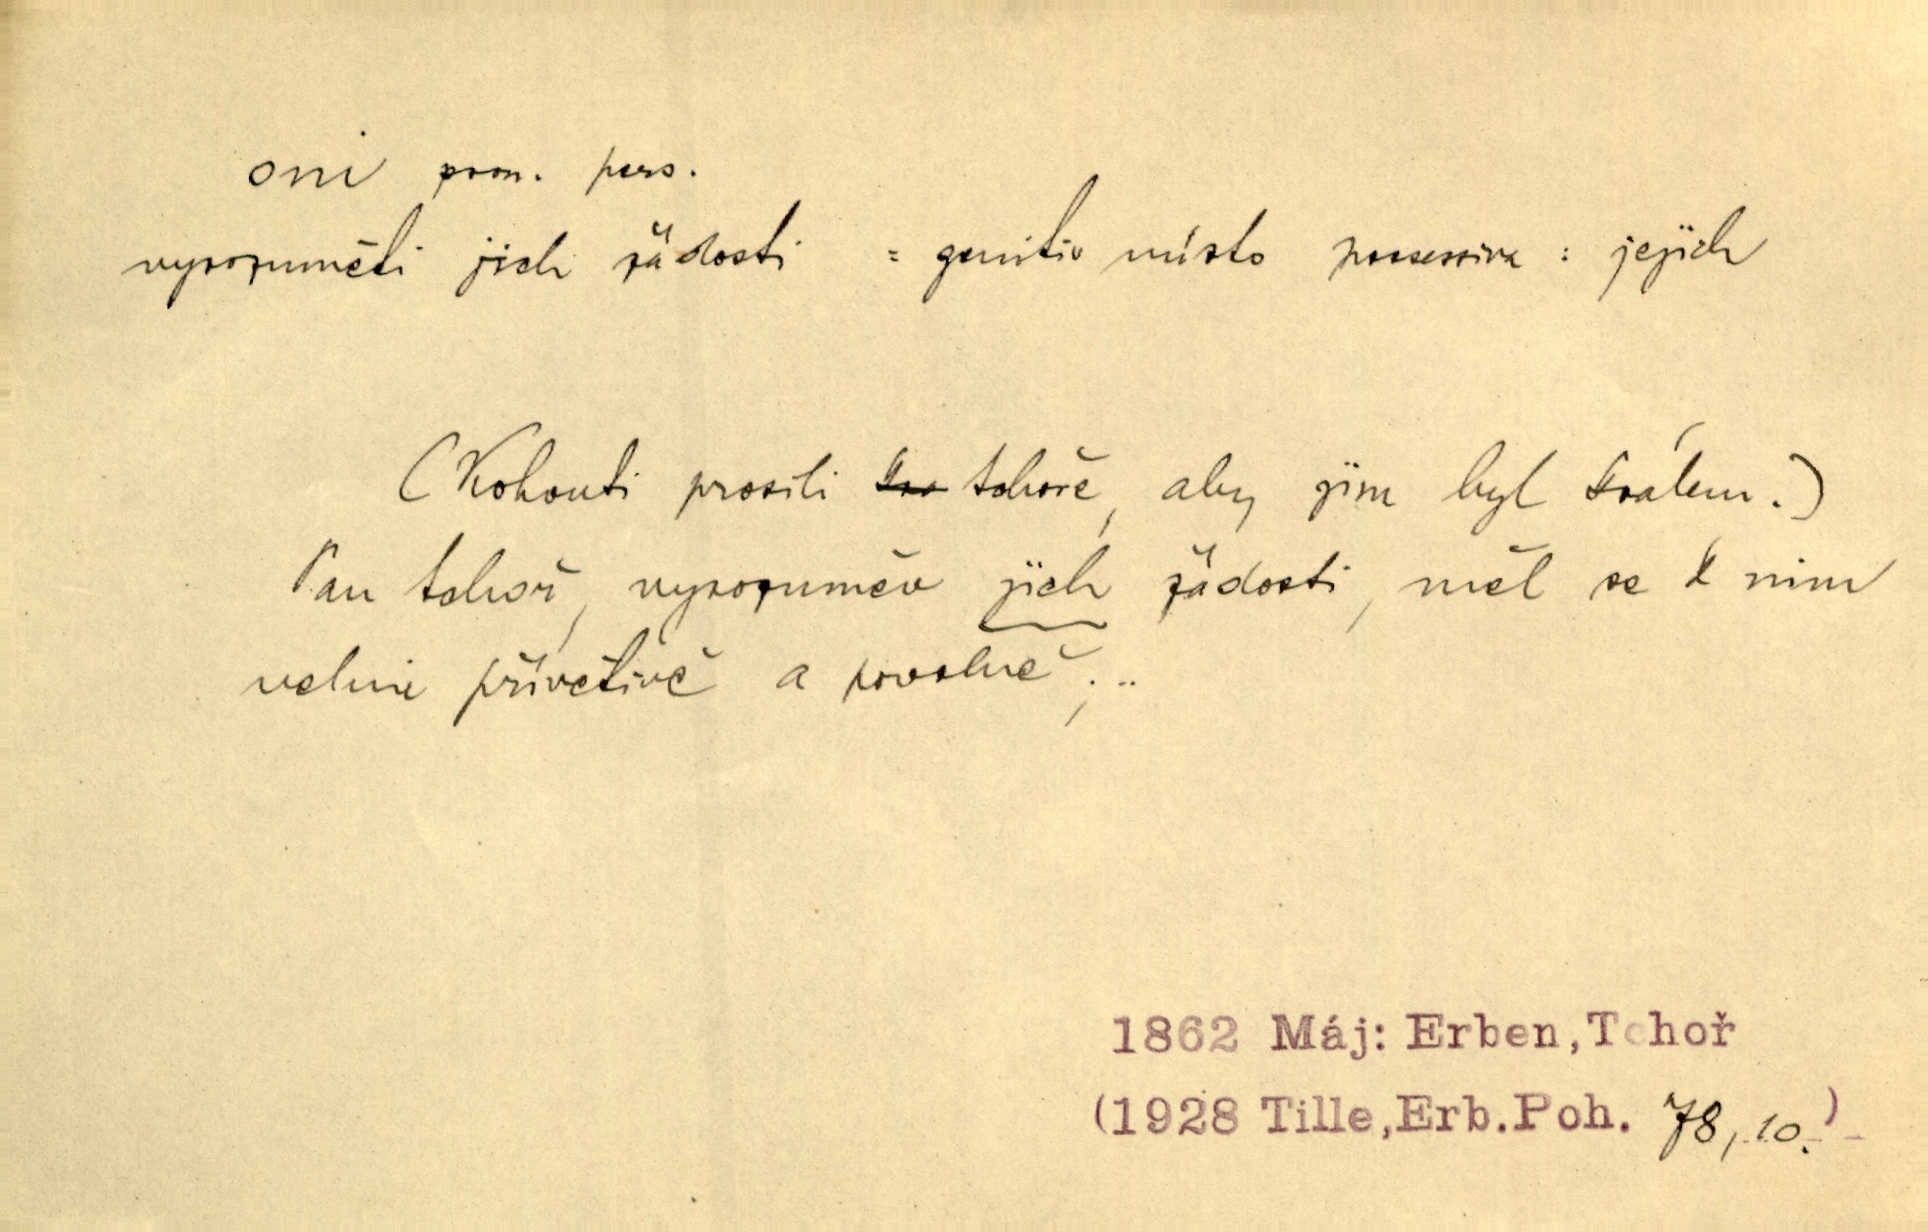 oni pron. pers.
vyrozuměti jich žádosti = genitiv místo possessiva : jejich
(Kohouti prosili tchoře, aby jim byl králem.)
Pan tchoř, vyrozuměv jich žádosti, měl se k nim
velmi přívětivě a povolně; ..
1862 Máj: Erben, Tchoř
(1928 Tille, Erb. Poh. 78, 10.)